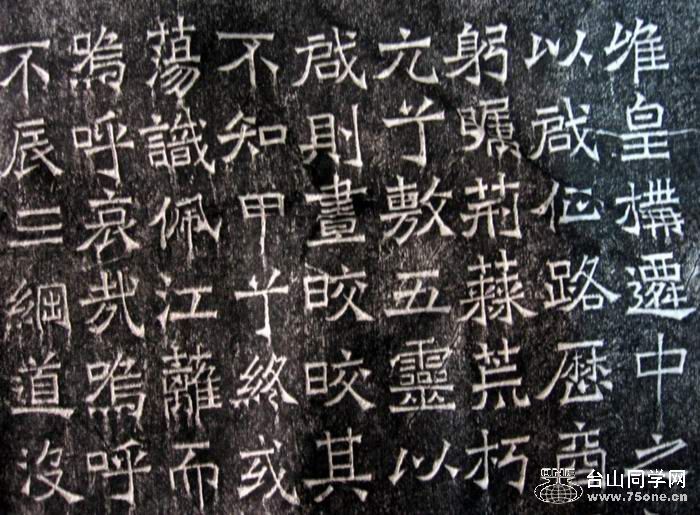 皇構遷中之
以啟路歷商
躬矚荊蕀荒朽
亢兮敷五靈以
啟則畫皎皎其
不知甲兮終或
蕩識佩江蘺而
嗚呼哀哉嗚呼
不辰三綱道沒
台山同学网
www.75one.cn